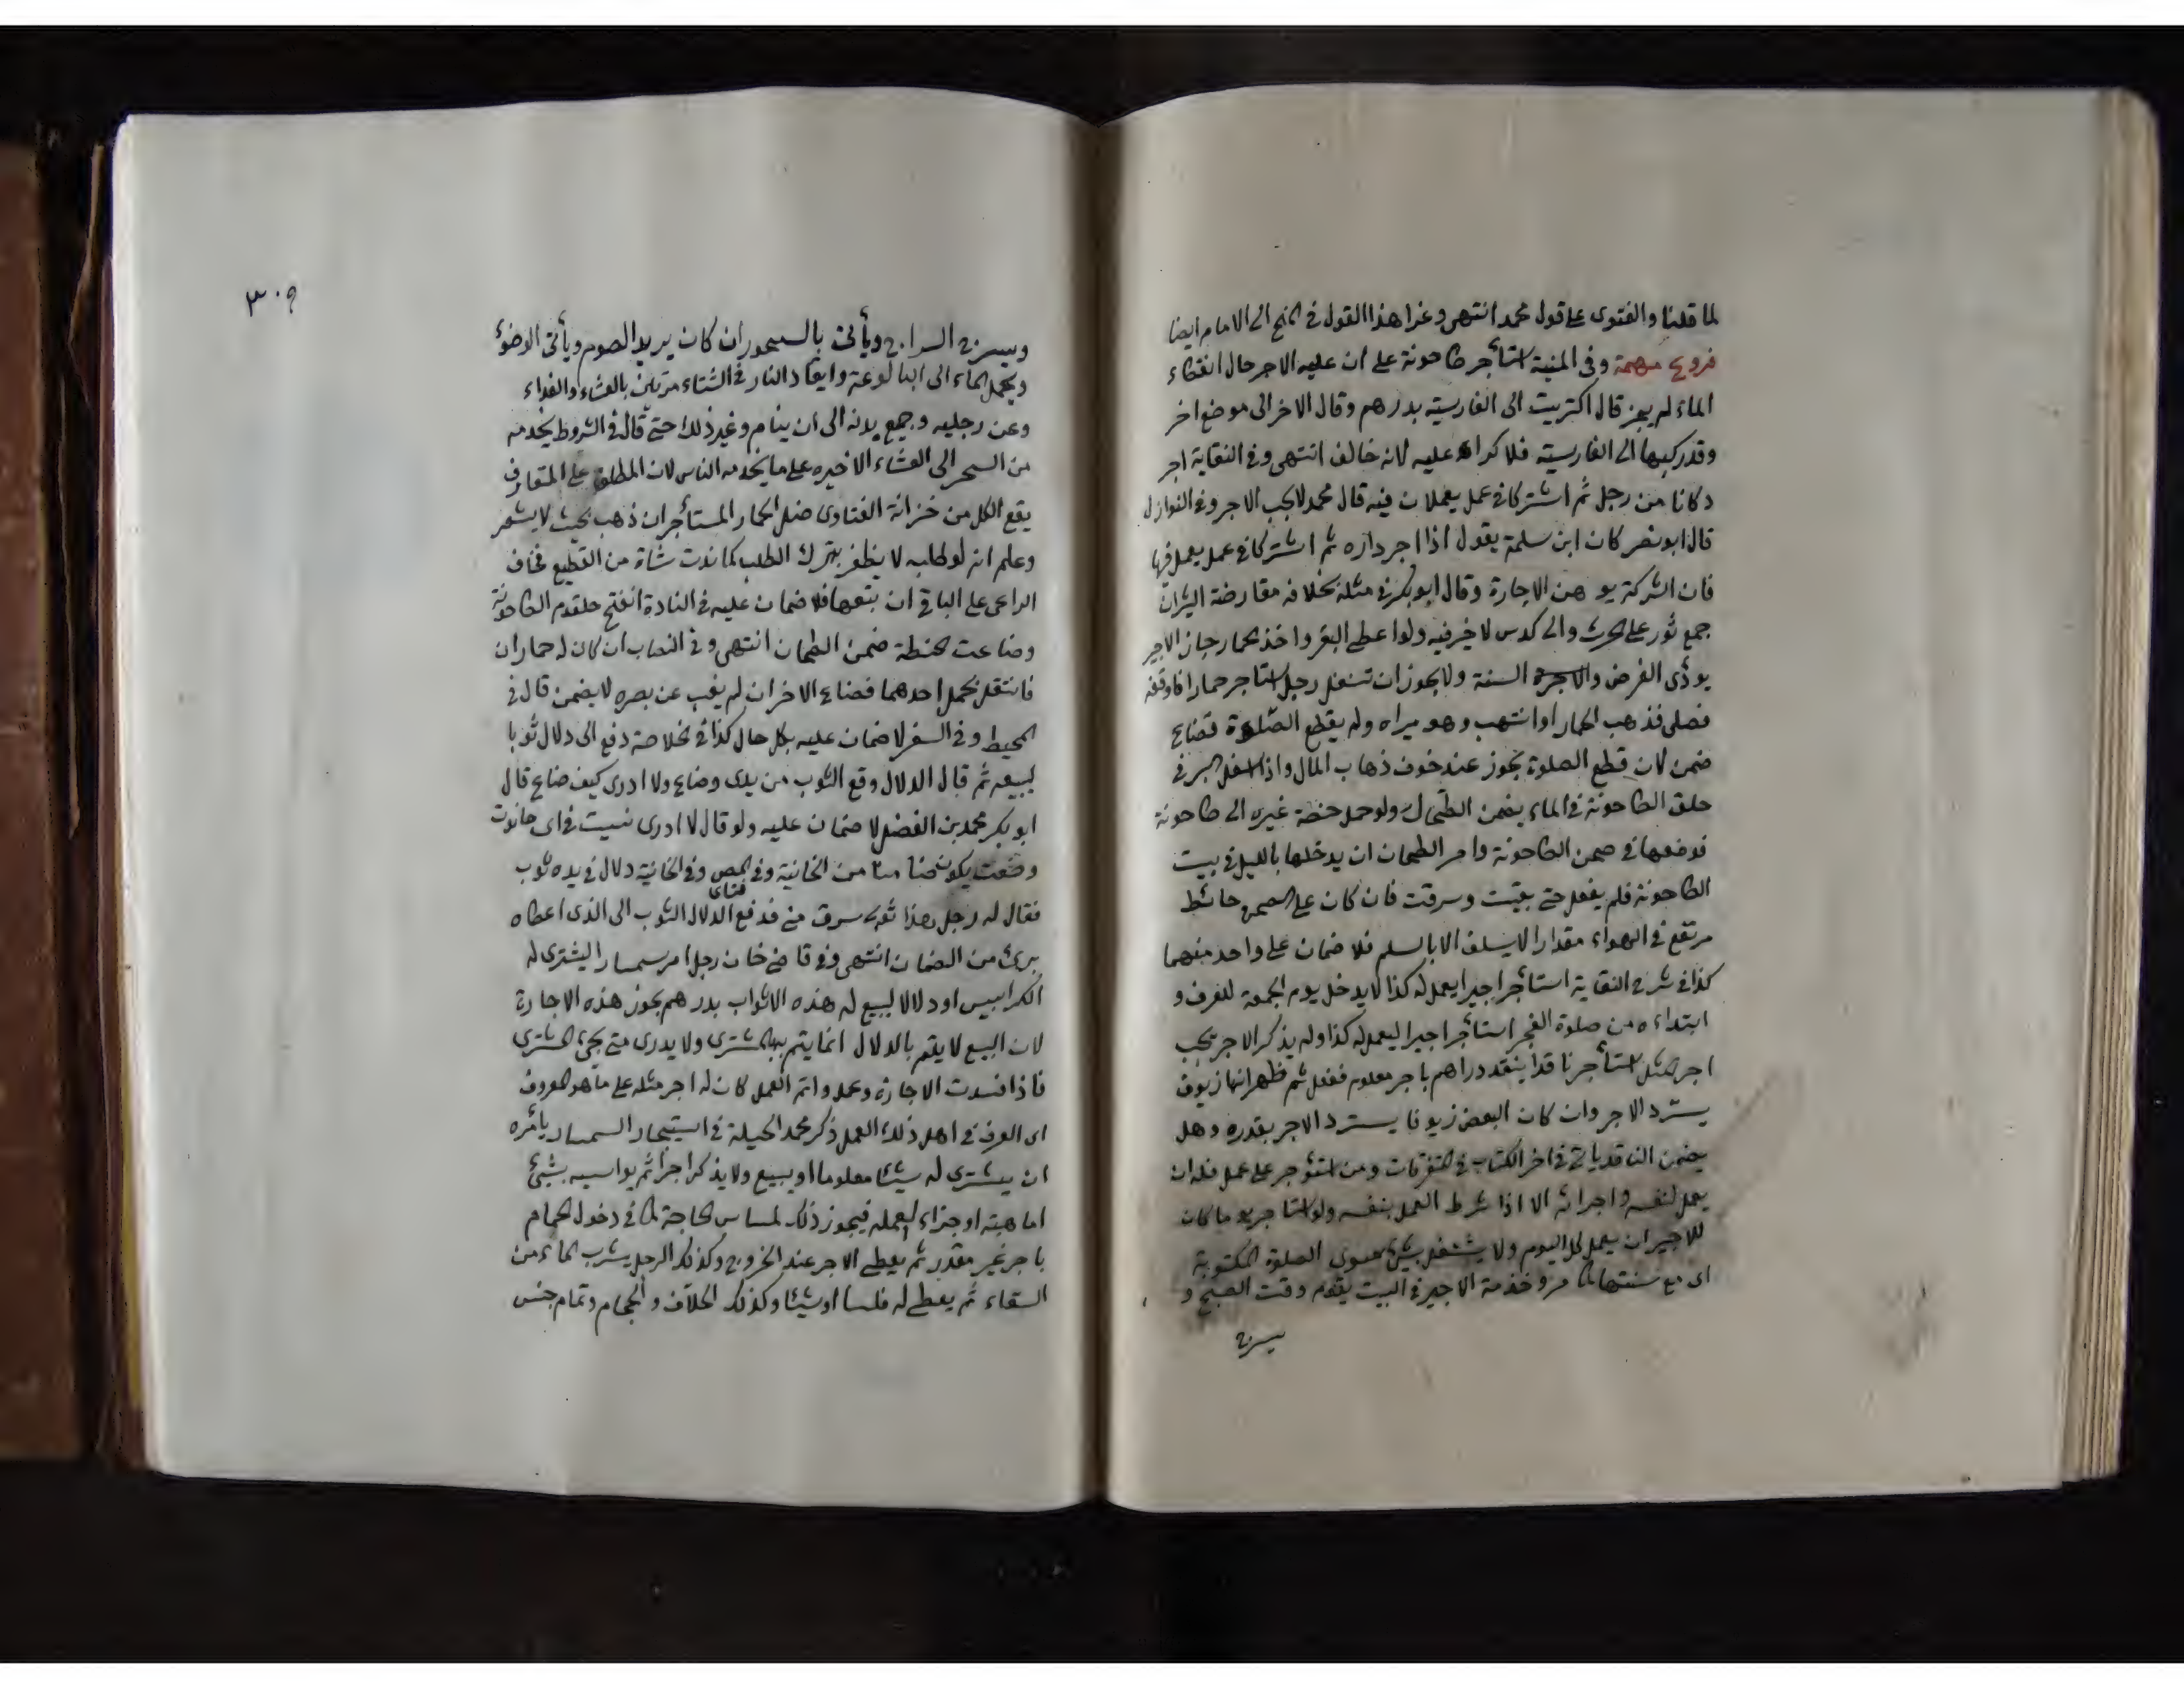 لما قلنا والفتوى على قول محمد انتهى وعزا هذا القول في المنح الى الامام ايضا
فروع مهمة وفي المنية استأجر طاحونة على ان عليه الاجر حال انقطاع
الماء لم يجز قال اكتريت الى الفارسية بدرهم وقال الاخر الى موضع اخر
وقد ركبها الى الفارسية فلا كراء عليه لانه خالف انتهى وفي النقاية اجر
دكانا من رجل ثم اشتركا في عمل يعملان فيه قال محمد لا يجب الاجر وفي النوازل
قال ابو نصر كان ابن سلمة يقول اذا اجر داره ثم اشتركا في عمل يعمل فيها
فان الشركة يوهن الاجارة وقال ابو بكر في مثله بخلافه مقارضة الثيران
جمع ثور على الحرث والى كدس لا خير فيه ولو اعطى البقر واخذ الحمار جاز الاجير
يؤدى الفرض والسنة ولا يجوز ان تنفل رجل استأجر حمارا فاوقفه
فصلى فذهب الحمار او انتهب وهو يراه ولم يقطع الصلوة فضاع
ضمن لان قطع الصلوة يجوز عند خوف ذهاب المال واذا في
حلق الطاحونة في الماء يضمن الطحان ولو حمل حنطة غيره الى طاحونة
فوضعها في صحن الطاحونة وامر الطحان ان يدخلها بالليل في بيت
الطاحونة فلم يفعل حتى بقيت وسرقت فان كان على الصحن حائط
مرتفع في الهواء مقدارا لا يسلق الا بالسلم فلا ضمان على واحد منهما
كذا في شرح النقاية استأجر اجيرا يعمل له كذا لا يدخل يوم الجمعة للعرف و
ابتداءه من صلوة الفجر استأجر اجيرا ليعمل له كذا ولم يذكر الاجر يجب
اجر المثل استأجر ناقدا ينقد دراهم باجر معلوم ففعل ثم ظهر انها زيوف
يسترد الاجر وان كان البعض زيوفا يسترد الاجر بقدره وهل
يضمن الناقد يأتي في اخر الكتاب في المتفرقات ومن استؤجر على عمل فله ان
يعمل بنفسه واجرائه الا اذا شرط العمل بنفسه ولو استأجر يوما كان
للاجير ان يعمل كل اليوم ولا يشتغل بشئ سوى الصلوة المكتوبة
اى مع سنتها كما مر وخدمة الاجير في البيت يقوم وقت الصبح و
يسرج
٣٠٩
ويسرج السراج ويأتى بالسحور ان كان يريد الصوم ويأتى الوضوء
ويحمل الماء الى البالوعة وايقاد النار في الشتاء مرتين بالعشاء والغداء
وغمز رجليه وجميع بدنه الى ان ينام وغير ذلك حتى قال في الشروط يخدمه
من السحر الى العشاء الاخيرة على ما يخدمه الناس لان المطلق على المتعارف
يقع الكل من خزانة الفتاوى ضل الحمار المستأجر ان ذهب بحيث لا يشعر
وعلم انه لو طلبه لا يظفر بترك الطلب كما ندت شاة من القطيع فخاف
الراعى على الباقى ان يتبعها فلا ضمان عليه في النادة انفتح حلقوم الطاحونة
وضاعت الحنطة ضمن الطحان انتهى وفي النصاب ان كان له حماران
فاشتغل بحمل احدهما فضاع الاخر ان لم يغب عن بصره لا يضمن قال في
المحيط وفي السفر لا ضمان عليه بكل حال كذا في الخلاصة دفع الى دلال ثوبا
ليبيعه ثم قال الدلال وقع الثوب من يدى وضاع ولا ادرى كيف ضاع قال
ابو بكر محمد بن الفضل لا ضمان عليه ولو قال لا ادرى نسيت في اى حانوت
وضعت يكون ضامنا من الخانية وفي وفي الخانية دلال في يده ثوب
فقال له رجل هذا ثوبى سرق منى فدفع الدلال الثوب الى الذى اعطاه
برئ من الضمان انتهى وفي قاضى خان رجل امر سمسارا ليشترى له
الكرابيس او دلالا ليبيع له هذه الاثواب بدرهم يجوز هذه الاجارة
لان البيع لا يتم بالدلال انما يتم بالمشترى ولا يدرى متى يجئ المشترى
فاذا فسدت الاجارة وعمل واتم العمل كان له اجر مثله على ما هو المعروف
اى العرف في اهل ذلك العمل ذكر محمد الحيلة في استيجار السمسار يأمره
ان يشترى له شيئا معلوما او يبيع ولا يذكر اجرا ثم يواسيه بشئ
اما هبة او جزاء لعمله فيجوز ذلك لمساس الحاجة كما في دخول الحمام
باجر غير مقدر ثم يعطى الاجر عند الخروج وكذلك الرجل يشرب الماء من
السقاء ثم يعطى له فلسا او شيئا وكذلك الحلاق والحجام وتمام جنس